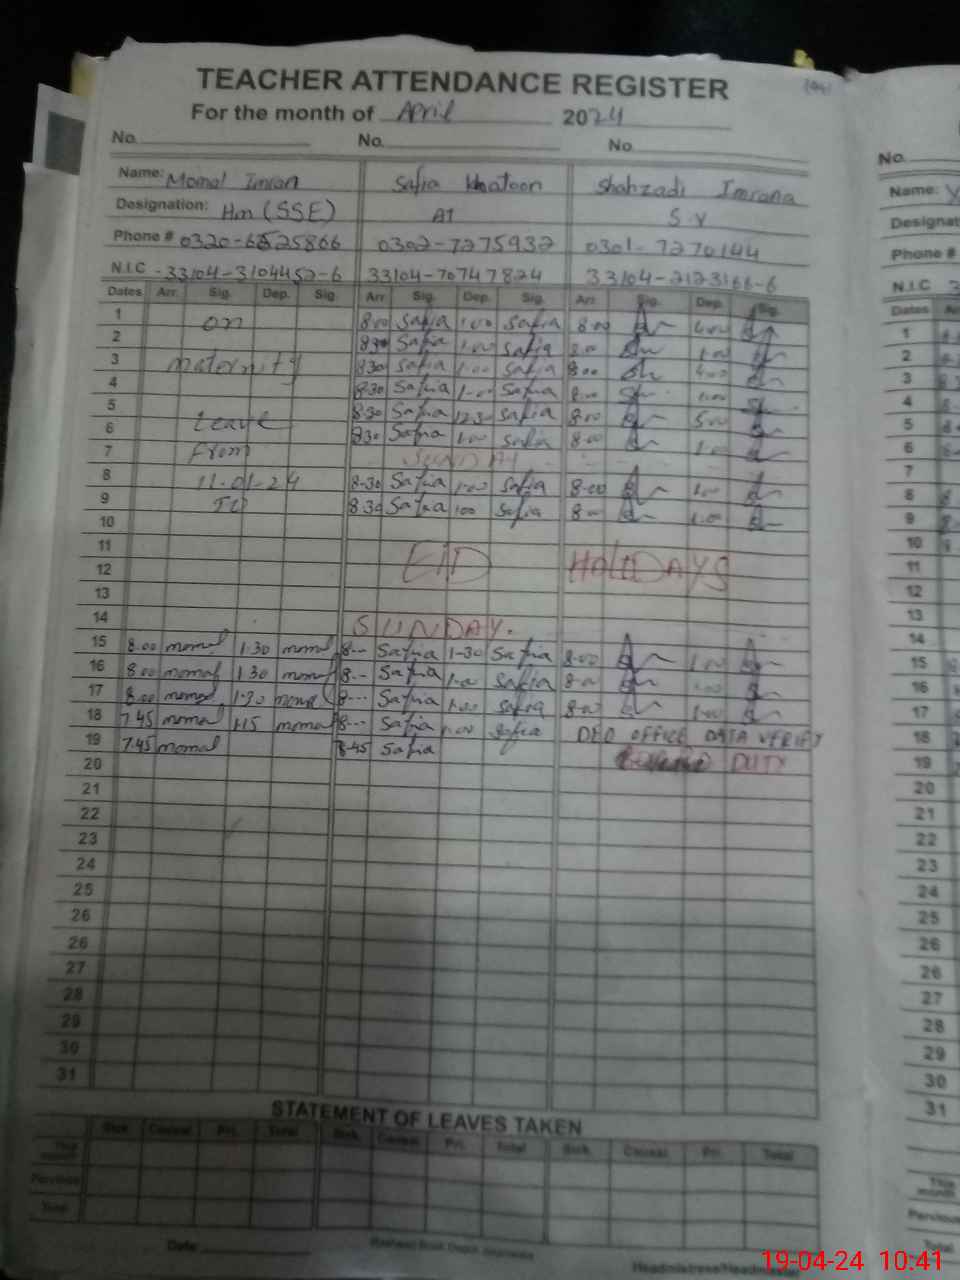 TEACHER ATTENDANCE REGISTER
For the month of April 2024
No. No. No.
Name: Momal Imran Safia Khatoon Shahzadi Imrana
Designation: Hm (SSE) AT S.V
Phone # 0320-6525866 0302-7275932 0301-7270144
N.I.C -33104-3104452-6 33104-70747824 33104-2123166-6
Dates Arr. Sig. Dep. Sig. Arr. Sig. Dep. Sig. Arr. Sig. Dep. Sig.
1 on 8:00 Safia 1:00 Safia 8:00 4:00
2 8:30 Safia 1:00 Safia 8:00 1:00
3 maternity 8:30 Safia 1:00 Safia 8:00 4:00
4 8:30 Safia 1:00 Safia 8:00 1:00
5 Leave 8:30 Safia 12:30 Safia 8:00 5:00
6 8:30 Safia 1:00 Safia 8:00 1:00
7 From SUNDAY
8 11-01-24 8-30 Safia 1-00 Safia 8-00 1:00
9 TO 8-30 Safia 1:00 Safia 8:00 1:00
10
11
12 EID HOLIDAYS
13
14 SUNDAY.
15 8.00 momal 1.30 momal 8-- Safia 1-30 Safia 8-00 1:00
16 8.00 momal 1.30 momal 8-- Safia 1-00 Safia 8-00 1:00
17 8.00 momal 1.30 momal 8-- Safia 1:00 Safia 8-00 1:00
18 7.45 momal 1.15 momal 8-- Safia 1:00 Safia DEO OFFICE DATA VERIFY
19 7.45 momal 8-45 Safia DUTY
20
21
22
23
24
25
26
26
27
28
29
30
31
STATEMENT OF LEAVES TAKEN
Sick. Causal Pri. Total Sick. Causal Pri. Total Sick. Causal Pri. Total
This month
Previous
Total
Date
Headmistress/Headmaster
No.
Name:
Designat
Phone #
N.I.C 3
Dates
1
2
3
4
5
6
7
8
9
10
11
12
13
14
15
16
17
18
19
20
21
22
23
24
25
26
26
27
28
29
30
31
This month
Previous
Total
19-04-24 10:41